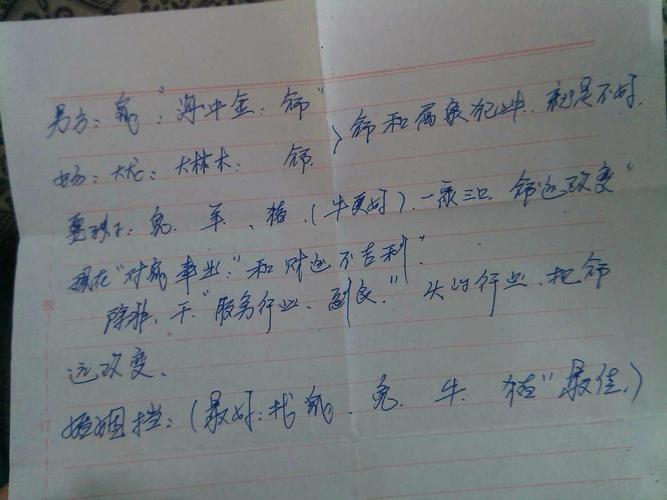 男方：鼠："海中金：命"
女方：龙：大林木：命．〉命和属象犯冲．就是不好．
要孩子：兔．羊、猪．(牛更好)．一家三口．命运改变"
现在"对事业："和财运不吉利"．
除非，干"服务行业、 "头的行业．把命
运改变．
婚姻挡：(最好：找鼠．兔．牛．猪"最佳．)
订